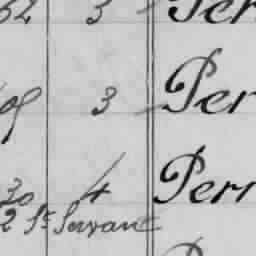 62 3 Per
3 Per
30 4 Perr
2 St Servant